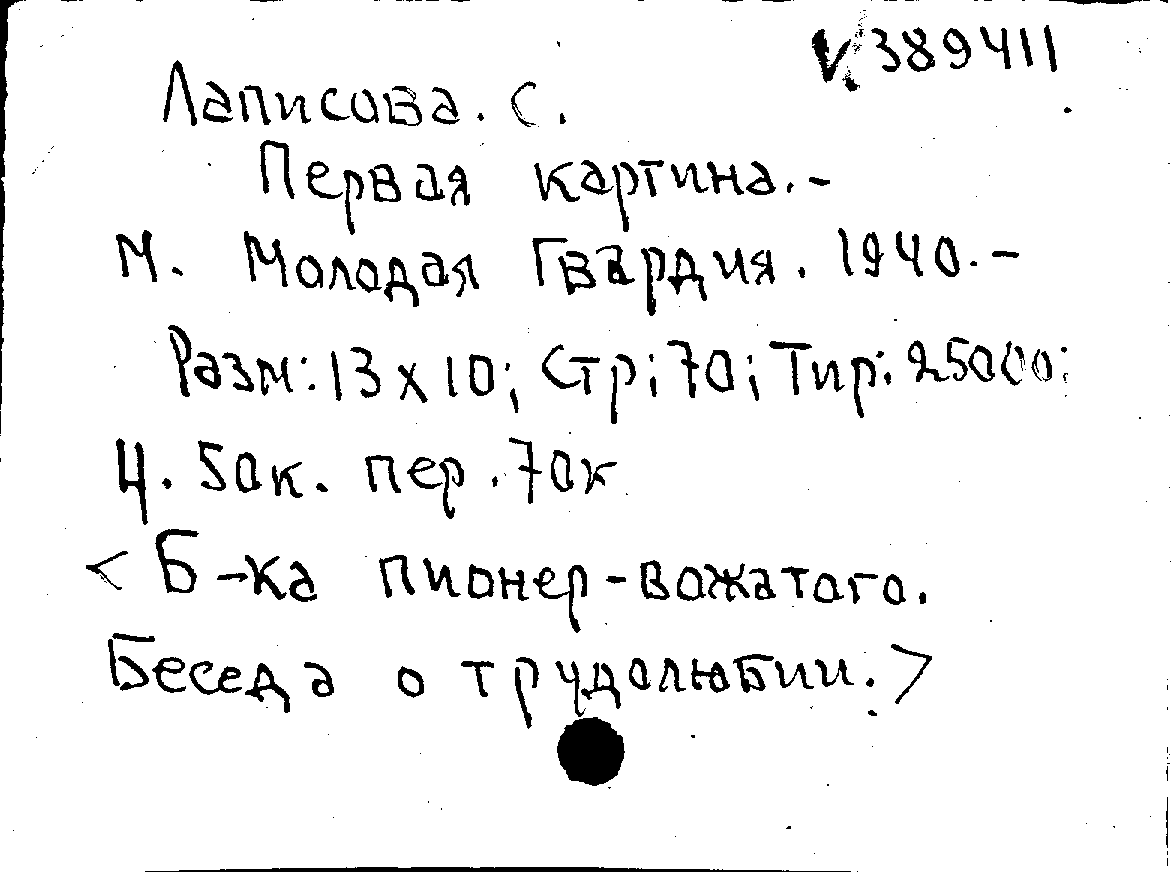 V 389411
Лаписова. С.
Первая картина.-
М. Молодая Гвардия. 1940.-
Разм: 13 x 10; Стр: 70; Тир: 25000;
Ц. 50к. пер. 70к
<Б-ка пионер-вожатого.
Беседа о трудолюбии.>